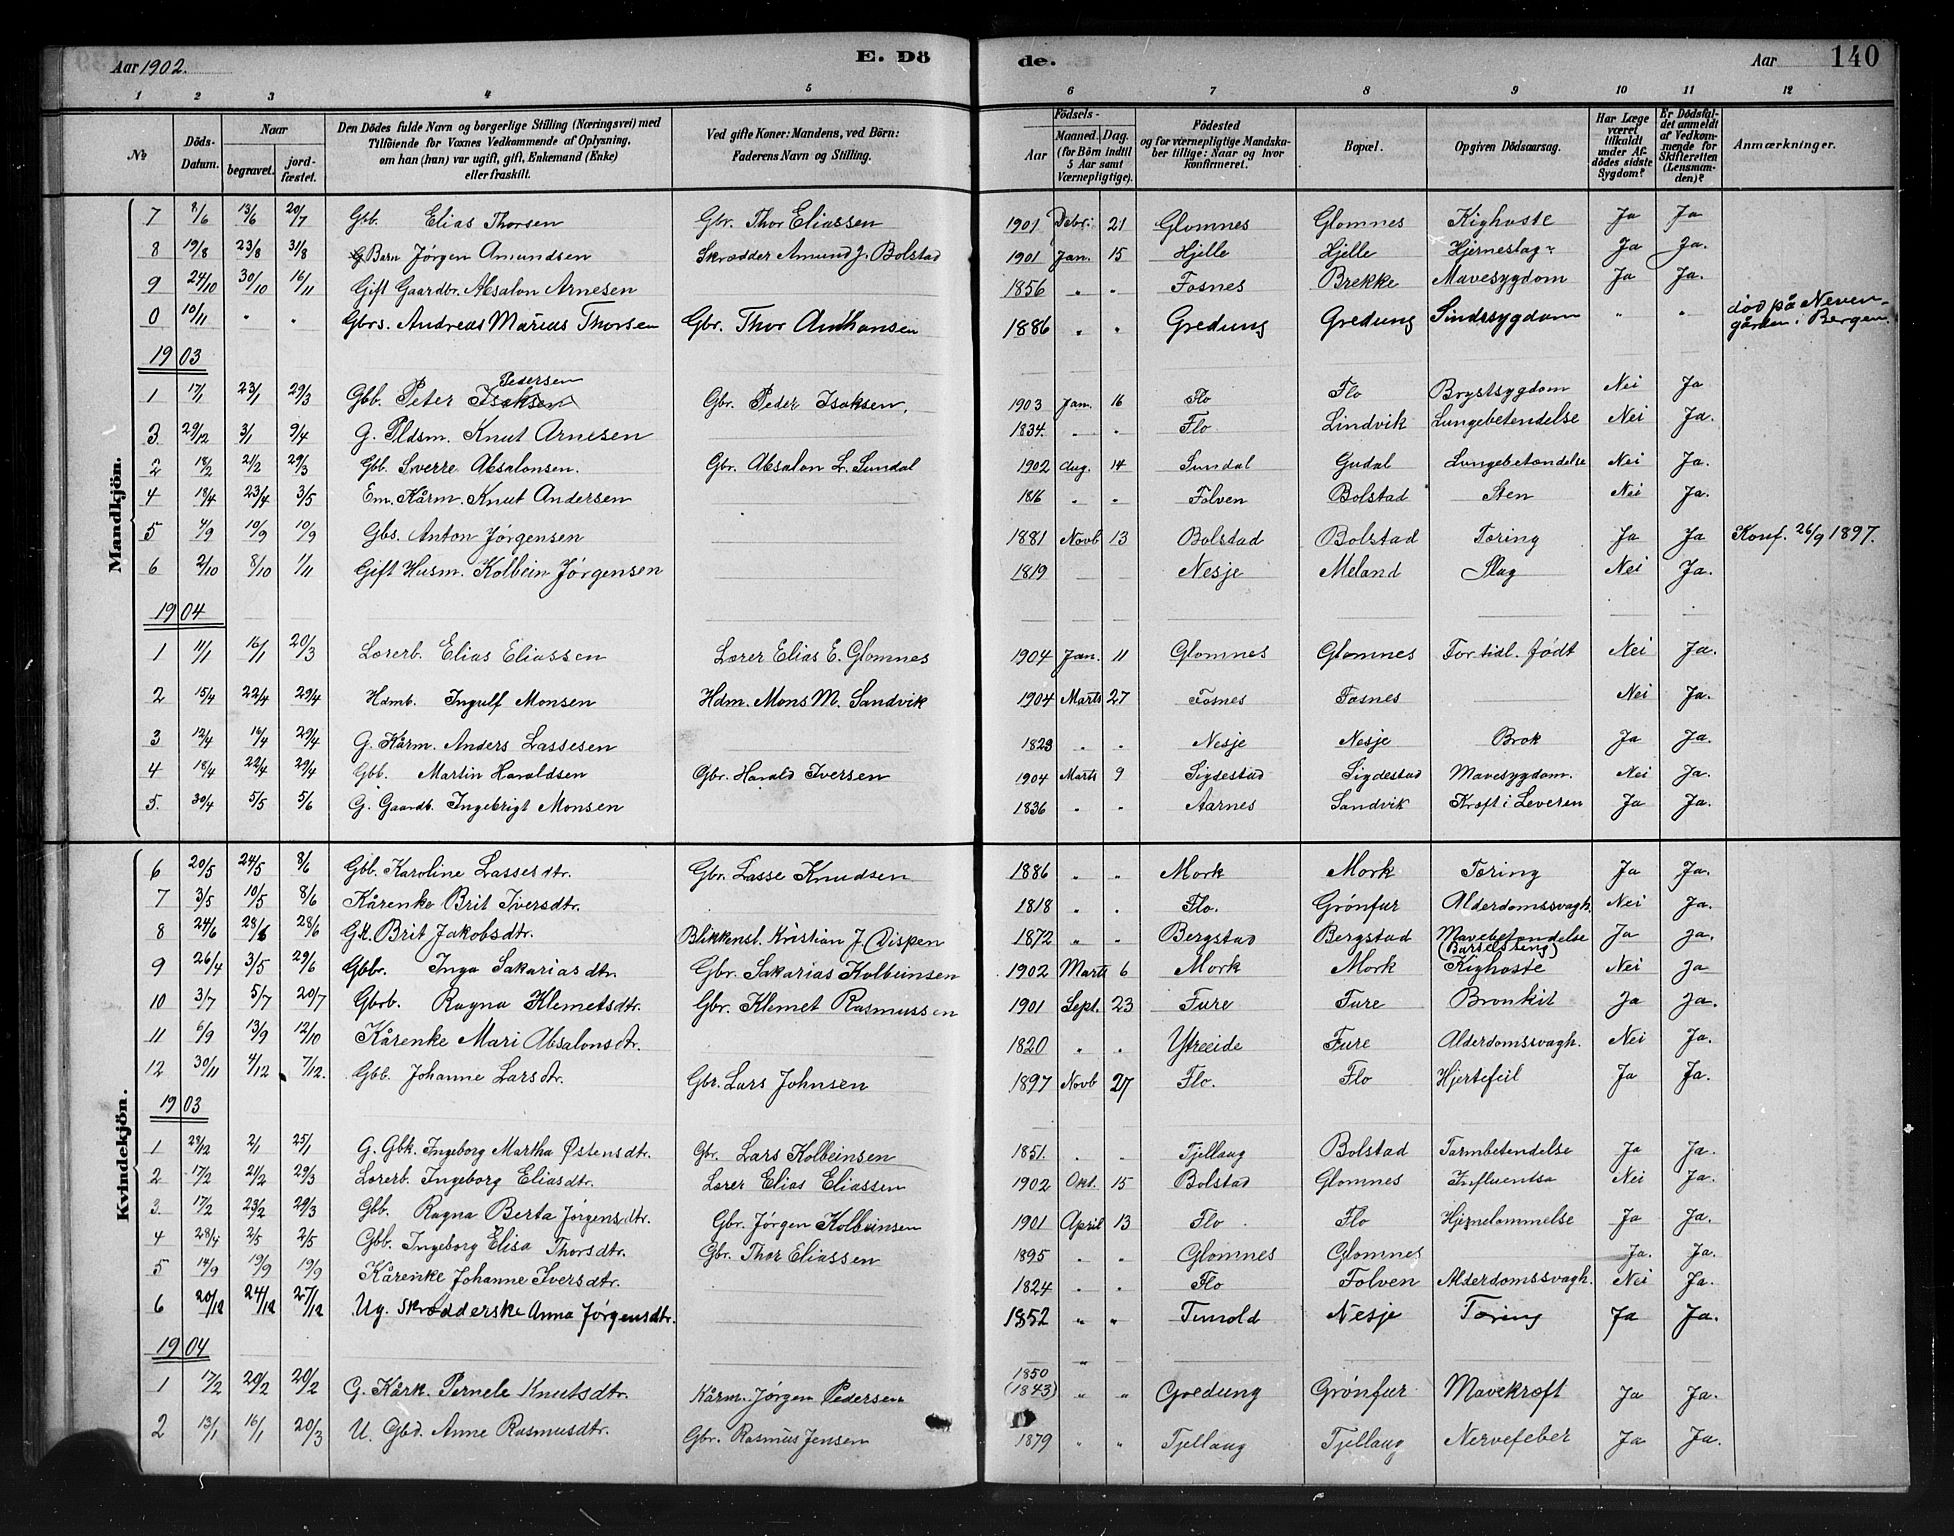 Aar 1902. E. Dö de. Aar 140
1 2 3 4 5 6 7 8 9 10 11 12
No Döds-Datum. Naar begravet. jord-fæstet. Den Dödes fulde Navn og borgerlige Stilling (Næringsvei) med Tilföiende for Voxnes Vedkommende af Oplysning, om han (hun) var ugift, gift, Enkemand (Enke) eller fraskilt. Ved gifte Koner: Mandens, ved Börn: Faderens Navn og Stilling. Födsels- Aar Maaned. (for Börn indtil 5 Aar samt Værnepligtige). Dag. Födested og for værnepligtige Mandska-ber tillige: Naar og hvor konfirmeret. Bopæl. Opgiven Dödsaarsag. Har Læge været tilkaldt under Af-dödes sidste Sygdom? Er Dödsfal-det anmeldt af Vedkom-mende for Skifteretten (Lensman-den)? Anmærkninger.
Mandkjön.
7 8/6 13/6 20/7 Gbb. Elias Thorsen Gbr. Thor Eliassen 1901 Debr. 21 Glomnes Glomnes Kighoste Ja Ja
8 19/8 23/8 31/8 Barn Jørgen Amundsen Skrædder Amund J. Bolstad 1901 Jan. 15 Hjelle Hjelle Hjerneslag Ja Ja.
9 24/10 30/10 16/11 Gift Gaardbr. Absalon Arnesen 1856 " " Fosnes Brekke Mavesygdom Ja Ja.
0 10/11 " " Gbrs. Andreas Marius Thorsen Gbr. Thor Anthonsen 1886 " " Gredung Gredung Sindssygdom " " død på Neven-gården i Bergen.
1903
1 17/1 23/1 29/3 Gbb. Peter Isaksen Pedersen Gbr. Peder Isaksen. 1903 Jan. 16 Flo Flo Brystsygdom Nei Ja
3 29/12 3/1 9/4 G. Pldsm. Knut Arnesen 1834. " " Flo Lindvik Lungebetendelse Nei Ja.
2 18/2 21/2 29/3 Gbb. Sverre Absalonsen. Gbr. Absalon L. Sundal 1902 Aug. 14 Sundal Gudal Lungebetændelse Nei Ja.
4 18/4 23/4 3/5 Em. Kårm. Knut Andersen 1816 " " Folven Bolstad Sten Nei Ja.
5 4/9 10/9 10/9 Gbs. Anton Jørgensen 1881 Novb 13 Bolstad Bolstad Tæring Ja Ja Konf. 26/9 1897.
6 2/10 8/10 1/11 Gift Husm. Kolbein Jørgensen 1819 Nesje Meland Slag Nei Ja.
1904
1 11/1 16/1 20/3 Lærerb. Elias Eliassen Lærer Elias E. Glomnes 1904 Jan. 11 Glomnes Glomnes For tidl. født Nei Ja.
2 15/4 22/4 29/4 Hdmb. Ingulf Monsen Hdm. Mons M. Sandvik 1904 Marts 27 Fosnes Fosnes Nei Ja.
3 12/4 16/4 29/4 G. Kårm. Anders Lassesen 1823 " " Nesje Nesje Brok Ja Ja.
4 18/4 22/4 29/4 Gbb. Martin Haraldsen Gbr. Harald Iversen 1904 Marts 9 Sigdestad Sigdestad Mavesygdom. Nei Ja.
5. 30/4 5/5 5/6 G. Gaardb. Ingebrigt Monsen 1836 " " Aarnes Sandvik Kræft i Leveren Ja Ja.
Kvindekjön.
6 20/5 24/5 8/6 Gbb. Karoline Lassesdtr. Gbr. Lasse Knudsen 1886 " " Mork Mork Tæring Ja Ja.
7 3/5 10/5 8/6 Kårenke Brit Iversdtr. 1818 " " Flo. Grønfur Alderdomssvagh. Nei Ja.
8 24/6 28/6 28/6 GK. Brit Jakobsdtr. Blikkensl. Kristian J. Dispen 1872 " " Bergstad Bergstad Mavebetendelse Ja Ja.
9 26/4 3/5 29/6 Gbbr. Inga Sakariasdtr. Gbr. Sakarias Kolbeinsen 1902 Marts 6 Mork Mork Kighoste Nei Ja
10 3/7 5/7 20/7 Gbrb. Ragna Klemetsdtr. Gbr. Klemet Rasmussen 1901 Sept. 23 Fure Fure Bronkit Ja Ja.
11 6/9 13/9 12/10 Kårenke Mari Absalonsdtr. 1820 " " Ytreeide Fure Alderdomssvagh. Nei Ja.
12 30/11 4/12 7/12. Gbb. Johanne Larsdtr. Gbr. Lars Johnsen 1897 Novb 27 Flo. Flo Hjertefeil Ja Ja.
1903
1 29/12 2/1 25/1 G. Gbk. Ingeborg Martha Østensdtr. Gbr. Lars Kolbeinsen 1851. " " Tjellaug Bolstad Tarmbetendelse Ja Ja.
2 17/2 21/2 29/3 Lærerb. Ingeborg Eliasdtr. Lærer Elias Eliassen 1902 Okt. 15 Bolstad Glomnes Influentsa Nei Ja.
3. 17/2 23/2 29/3 Gbb. Ragna Berta Jørgensdtr. Gbr. Jørgen Kolbeinsen 1901 April 13 Flo Flo Hjernelammelse Ja Ja.
4 28/4 2/5 2/5 Gbb. Ingeborg Elisa Thorsdtr. Gbr. Thor Eliassen 1895 " " Glomnes Glomnes Ja. Ja.
5 14/9 19/9 19/9 Kårenke Johanne Iversdtr. 1824 " " Flo Folven Alderdomssvagh. Nei Ja.
6 20/12 24/12 27/12 Ug. Skrædderske Anna Jørgensdtr. 1852 " " Tunold Nesje Tæring Ja Ja.
1904
1 17/2 20/2 20/2 G. Kårk. Pernele Knutsdtr. Kårm. Jørgen Pedersen 1850 (1843) " " Gredung Grønfur Mavekræft Ja Ja.
2 13/1 16/1 20/3 U. Gbd. Anne Rasmusdtr. Gbr. Rasmus Jensen 1879 " " Tjellaug Tjellaug Nervefeber Ja Ja.